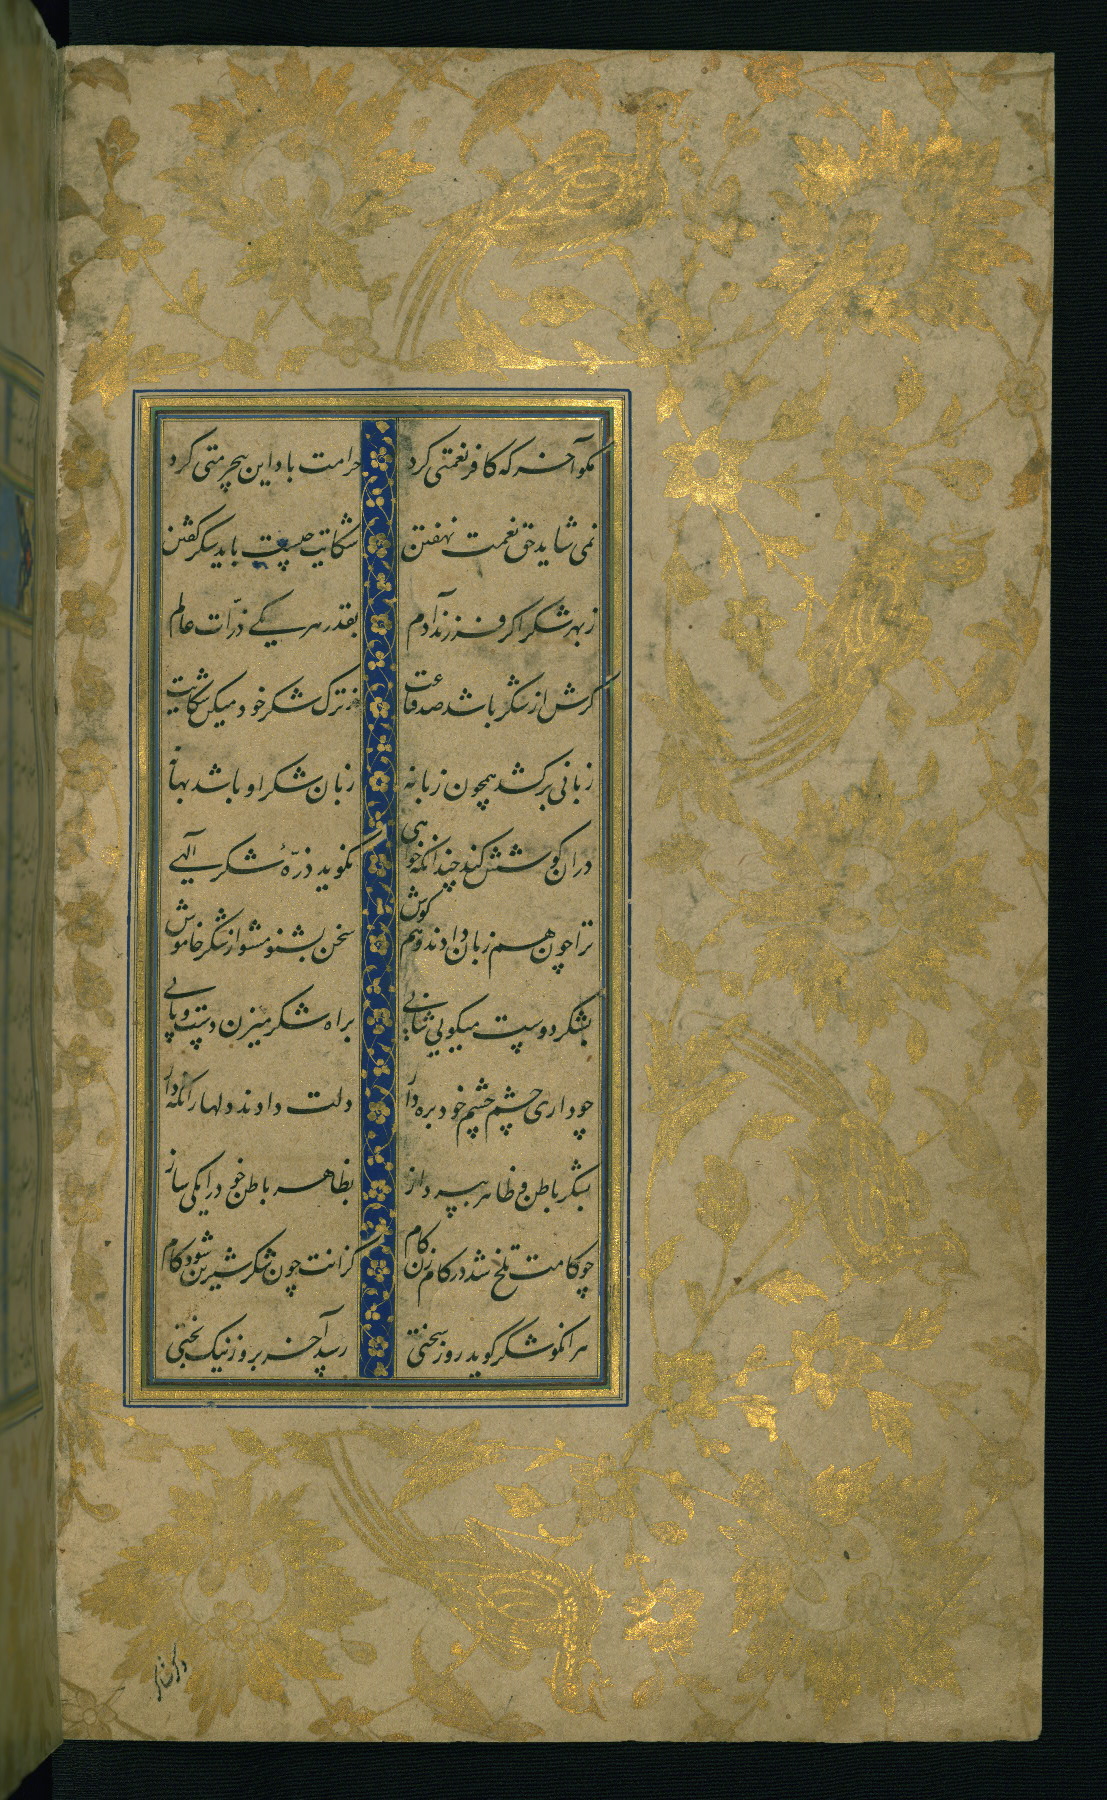 مکو آخر که کافر نعمتی کرد حرامت باد این بیحرمتی کرد
نمی شاید حق نعمت نهفتن شکایت چیست باید شکر گفتن
ز بهر شکر اگر فرزند آدم بقدر هر یکی ذرّات عالم
گرش از شکر باشد صد قناعت ز ترک شکر خود میکن شکایت
زبانی برکشد همچون زبانه زبان شکر او باشد بهانه
دران کوشش کند چندانکه خواهی نکوید ذرّهٔ شکر الهی
ترا چون هم زبان دادند و هم کوش سخن بشنو مشو از شکر خاموش
بشکر دوست میکویی ثنایی براه شکر میزن دست و پایی
چو داری چشم چشم خود بره دار دلت دادند دلها را نکه دار
بشکر باطن و ظاهر بپرداز بظاهر باطن خود را یکی ساز
چو کامت تلخ شد در کام زن کام کزانت چون شکر شیرین شود کام
هر انکو شکر کوید روز سختی رسد آخر بروز نیک بختی